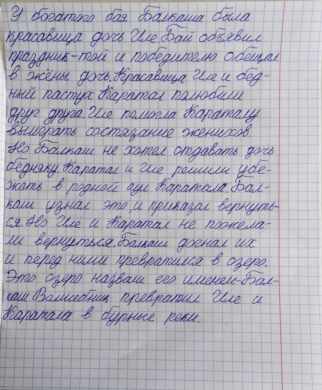 У богатого бая Балкаша была
красавица дочь Иле. Бай объявил
праздник-той и победителю обещал
в жёны дочь. Красавица Иле и бед-
ный пастух Каратал полюбили
друг друга. Иле помогла Караталу
выиграть состязание женихов.
Но Балкаш не хотел отдавать дочь
бедняку. Каратал и Иле решили убе-
жать в родной аул Каратала. Бал-
каш узнал это, и приказал вернуть-
ся. Но Иле и Каратал не пожела-
ли вернуться. Балкаш догнал их
и перед ними превратился в озеро.
Это озеро назвали его именем-Бал-
каш. Волшебник превратил Иле и
Каратала в бурные реки.